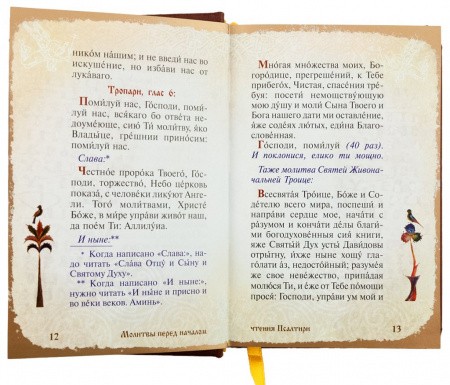 ником на́шим; и не введи́ нас во
искуше́ние, но изба́ви нас от
лука́ваго.
Тропари, глас 6:
Поми́луй нас, Го́споди, поми́-
луй нас, вся́каго бо отве́та не
доуме́юще, сию́ Ти́ моли́тву, я́ко
Влады́це, гре́шнии прино́сим:
поми́луй нас.
Слава:*
Че́стное проро́ка Твоего́, Го́с-
поди, торжество́, Не́бо це́рковь
показа́, с челове́ки лику́ют А́нге-
ли. Того́ моли́твами, Христе́
Бо́же, в ми́ре упра́ви живо́т наш,
да пое́м Ти: Аллилу́иа.
И ныне:**
* Когда написано «Слава:», на-
до читать «Сла́ва Отцу́ и Сы́ну и
Святому Духу».
** Когда написано «И ныне:»,
нужно читать «И ны́не и присно и
во ве́ки веко́в. Ами́нь».
12 Молитвы перед началом
Мно́гая мно́жества моих, Бо-
горо́дице, прегреше́ний, к Тебе́
прибего́х, Чи́стая, спасе́ния тре́-
буя: посети́ немощству́ющую
мою́ ду́шу и моли́ Сы́на Твоего́ и
Бо́га на́шего да́ти ми оставле́ние,
я́же соде́ях лю́тых, еди́на Благо-
слове́нная.
Го́споди, поми́луй (40 раз).
И поклонися, елико ти мощно.
Таже молитва Святей Живона-
чальней Троице:
Всесвята́я Тро́ице, Бо́же и Со-
де́телю всего́ ми́ра, поспеши́ и
напра́ви се́рдце мое́, нача́ти с
ра́зумом и конча́ти де́лы благи́-
ми богодухнове́нныя сия́ кни́ги,
я́же Святы́й Дух усты́ Дави́довы
отры́гну, и́хже ны́не хощу́ глаго́-
лати а́з, недосто́йный; разуме́я
же свое́ неве́жество, припа́дая
молю́ся Ти, и е́же от Тебе́ по́мощи
прося́: Го́споди, упра́ви ум мой и
чтения Псалтири 13